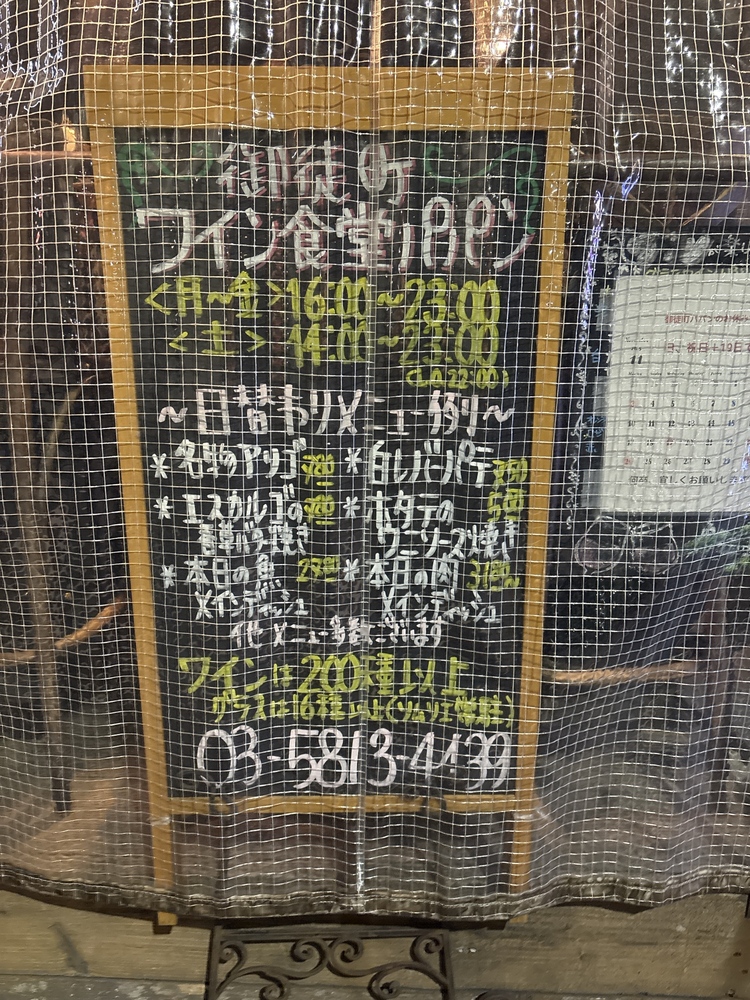 御徒町
ワイン食堂パパン
<月〜金>16:00〜23:00
<土>14:00〜23:00
(L.O 22:00)
〜日替わりメニュー例〜
*名物アリゴ *白レバーパテ
*エスカルゴの *ホタテの
香草バター焼き ウニソース焼き
*本日の魚 *本日の肉
メインディッシュ メインディッシュ
他メニュー多数ございます
ワインは200種以上
グラスは16種以上(ソムリエ常駐)
03-5813-4439
御徒町パパンのお休み
11
日、祝日+19日
4 5 7 8
10 11 12
25 26 27 28
宜しくお願いします